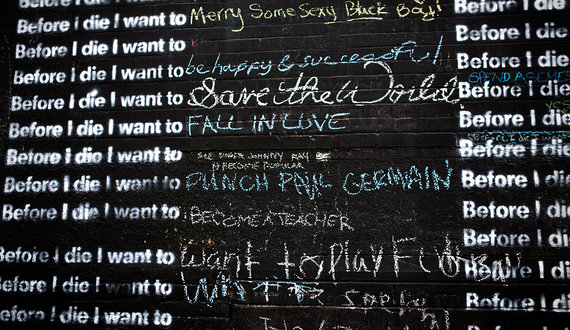 Before I die I want to Merry Some Sexy Black Boy!
Before I die I want to
Before I die I want to be happy & successful
Before I die I want to Save the World
Before I die I want to FALL IN LOVE
Before I die I want to SEE SINGER JOHNNY RAY
BECOME POPULAR
Before I die I want to PUNCH PAUL GERMAIN
Before I die I want to BECOME A TEACHER
Before I die I want to Want to Play Football
Before I die I want to
Before I die I want to
Before I die I
Before I die I
Before I di
SPEND A
Before I di
YES
Before I di
Before I di
Before I di
Before I di
Before I di
Before I di
Before I di
Before I di